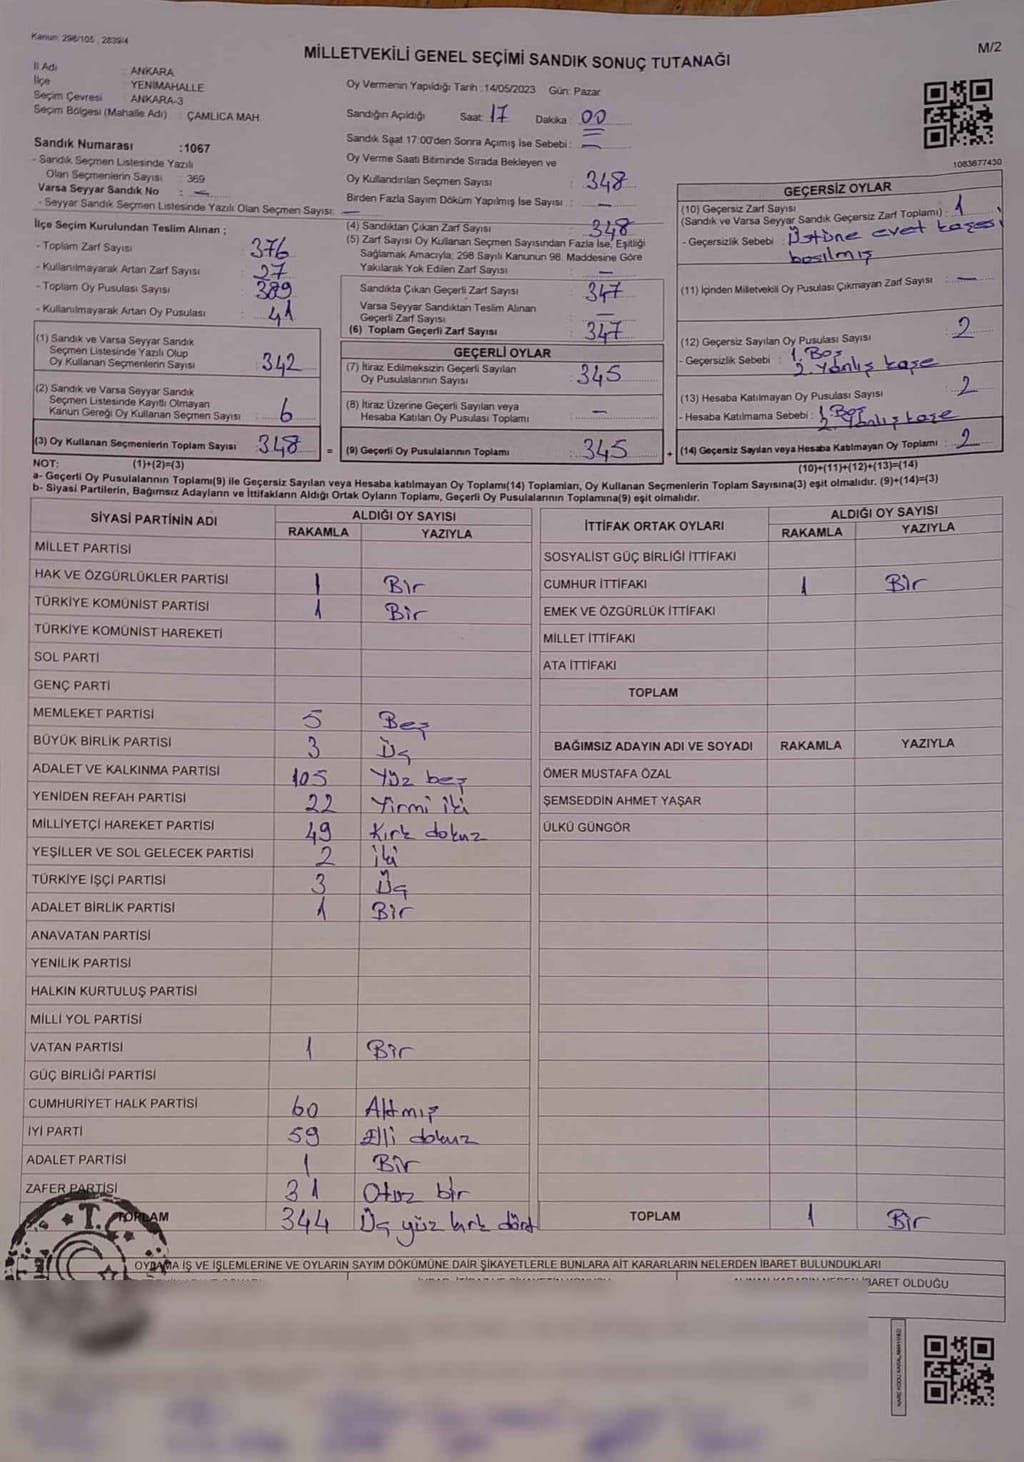 Kanun: 298/105, 2839/4
MİLLETVEKİLİ GENEL SEÇİMİ SANDIK SONUÇ TUTANAĞI
M/2
İl Adı : ANKARA
İlçe YENİMAHALLE
Seçim Çevresi ANKARA-3
Seçim Bölgesi (Mahalle Adı) : ÇAMLICA MAH.
Sandık Numarası :1067
- Sandık Seçmen Listesinde Yazılı
Olan Seçmenlerin Sayısı : 369
Varsa Seyyar Sandık No : —
- Seyyar Sandık Seçmen Listesinde Yazılı Olan Seçmen Sayısı: —
İlçe Seçim Kurulundan Teslim Alınan ;
- Toplam Zarf Sayısı 376
- Kullanılmayarak Artan Zarf Sayısı : 27
- Toplam Oy Pusulası Sayısı : 389
- Kullanılmayarak Artan Oy Pusulası : 41
(1) Sandık ve Varsa Seyyar Sandık
Seçmen Listesinde Yazılı Olup
Oy Kullanan Seçmenlerin Sayısı : 342
(2) Sandık ve Varsa Seyyar Sandık
Seçmen Listesinde Kayıtlı Olmayan
Kanun Gereği Oy Kullanan Seçmen Sayısı : 6
(3) Oy Kullanan Seçmenlerin Toplam Sayısı : 348 =
Oy Vermenin Yapıldığı Tarih : 14/05/2023 Gün: Pazar
Sandığın Açıldığı Saat: 17 Dakika : 00
Sandık Saat 17:00'den Sonra Açımış İse Sebebi : —
Oy Verme Saati Bitiminde Sırada Bekleyen ve
Oy Kullandırılan Seçmen Sayısı : 348
Birden Fazla Sayım Döküm Yapılmış İse Sayısı : —
(4) Sandıktan Çıkan Zarf Sayısı : 348
(5) Zarf Sayısı Oy Kullanan Seçmen Sayısından Fazla İse, Eşitliği
Sağlamak Amacıyla; 298 Sayılı Kanunun 98. Maddesine Göre
Yakılarak Yok Edilen Zarf Sayısı : —
Sandıkta Çıkan Geçerli Zarf Sayısı : 347
Varsa Seyyar Sandıktan Teslim Alınan
Geçerli Zarf Sayısı : —
(6) Toplam Geçerli Zarf Sayısı : 347
GEÇERLİ OYLAR
(7) İtiraz Edilmeksizin Geçerli Sayılan
Oy Pusulalarının Sayısı : 345
(8) İtiraz Üzerine Geçerli Sayılan veya
Hesaba Katılan Oy Pusulası Toplamı : —
(9) Geçerli Oy Pusulalarının Toplamı : 345 +
1083677430
GEÇERSİZ OYLAR
(10) Geçersiz Zarf Sayısı
(Sandık ve Varsa Seyyar Sandık Geçersiz Zarf Toplamı) : 1
- Geçersizlik Sebebi : Üstüne evet kaşesi
basılmış
(11) İçinden Milletvekili Oy Pusulası Çıkmayan Zarf Sayısı : —
(12) Geçersiz Sayılan Oy Pusulası Sayısı : 2
- Geçersizlik Sebebi : 1. Boş
2. Yanlış kaşe
(13) Hesaba Katılmayan Oy Pusulası Sayısı : 2
- Hesaba Katılmama Sebebi : 1. Boş
2. Yanlış kaşe
(14) Geçersiz Sayılan veya Hesaba Katılmayan Oy Toplamı : 2
NOT: (1)+(2)=(3)
(10)+(11)+(12)+(13)=(14)
a- Geçerli Oy Pusulalarının Toplamı(9) ile Geçersiz Sayılan veya Hesaba katılmayan Oy Toplamı(14) Toplamları, Oy Kullanan Seçmenlerin Toplam Sayısına(3) eşit olmalıdır. (9)+(14)=(3)
b- Siyasi Partilerin, Bağımsız Adayların ve İttifakların Aldığı Ortak Oyların Toplamı, Geçerli Oy Pusulalarının Toplamına(9) eşit olmalıdır.
SİYASİ PARTİNİN ADI ALDIĞI OY SAYISI
RAKAMLA YAZIYLA
MİLLET PARTİSİ
HAK VE ÖZGÜRLÜKLER PARTİSİ 1 Bir
TÜRKİYE KOMÜNİST PARTİSİ 1 Bir
TÜRKİYE KOMÜNİST HAREKETİ
SOL PARTİ
GENÇ PARTİ
MEMLEKET PARTİSİ 5 Beş
BÜYÜK BİRLİK PARTİSİ 3 Üç
ADALET VE KALKINMA PARTİSİ 105 Yüz beş
YENİDEN REFAH PARTİSİ 22 Yirmi iki
MİLLİYETÇİ HAREKET PARTİSİ 49 Kırk dokuz
YEŞİLLER VE SOL GELECEK PARTİSİ 2 İki
TÜRKİYE İŞÇİ PARTİSİ 3 Üç
ADALET BİRLİK PARTİSİ 1 Bir
ANAVATAN PARTİSİ
YENİLİK PARTİSİ
HALKIN KURTULUŞ PARTİSİ
MİLLİ YOL PARTİSİ
VATAN PARTİSİ 1 Bir
GÜÇ BİRLİĞİ PARTİSİ
CUMHURİYET HALK PARTİSİ 60 Altmış
İYİ PARTİ 59 Elli dokuz
ADALET PARTİSİ 1 Bir
ZAFER PARTİSİ 31 Otuz bir
TOPLAM 344 Üç yüz kırk dört
T.C.
İTTİFAK ORTAK OYLARI ALDIĞI OY SAYISI
RAKAMLA YAZIYLA
SOSYALİST GÜÇ BİRLİĞİ İTTİFAKI
CUMHUR İTTİFAKI 1 Bir
EMEK VE ÖZGÜRLÜK İTTİFAKI
MİLLET İTTİFAKI
ATA İTTİFAKI
TOPLAM
BAĞIMSIZ ADAYIN ADI VE SOYADI RAKAMLA YAZIYLA
ÖMER MUSTAFA ÖZAL
ŞEMSEDDİN AHMET YAŞAR
ÜLKÜ GÜNGÖR
TOPLAM 1 Bir
OYLAMA İŞ VE İŞLEMLERİNE VE OYLARIN SAYIM DÖKÜMÜNE DAİR ŞİKAYETLERLE BUNLARA AİT KARARLARIN NELERDEN İBARET BULUNDUKLARI
İBARET OLDUĞU